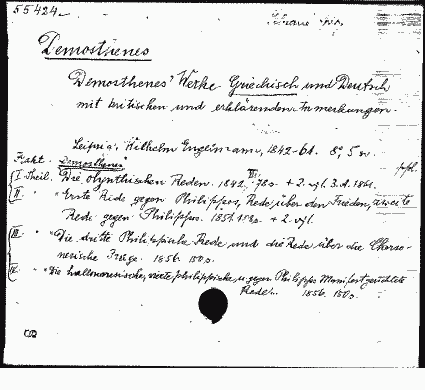 55424
Demosthenes
Demosthenes' Werke Griechisch und Deutsch
mit kritischen und erklärenden Anmerkungen.
Leipzig, Wilhelm Engelmann, 1842-61. 8°, 5
Demosthenes'
I Theil. Die olynthischen Reden. 1842. 3. A. 1861.
II " " Erste Rede gegen Philippos, Rede über den Frieden, zweite
Rede gegen Philippos. 1851.
III. " " Die dritte Philippische Rede und die Rede über die Cherso-
nesische Frage. 1856.
IV. " " Die hallonnesische, vierte philippische, u. gegen Philipps Manifest gerichtete
Rede. 1856.